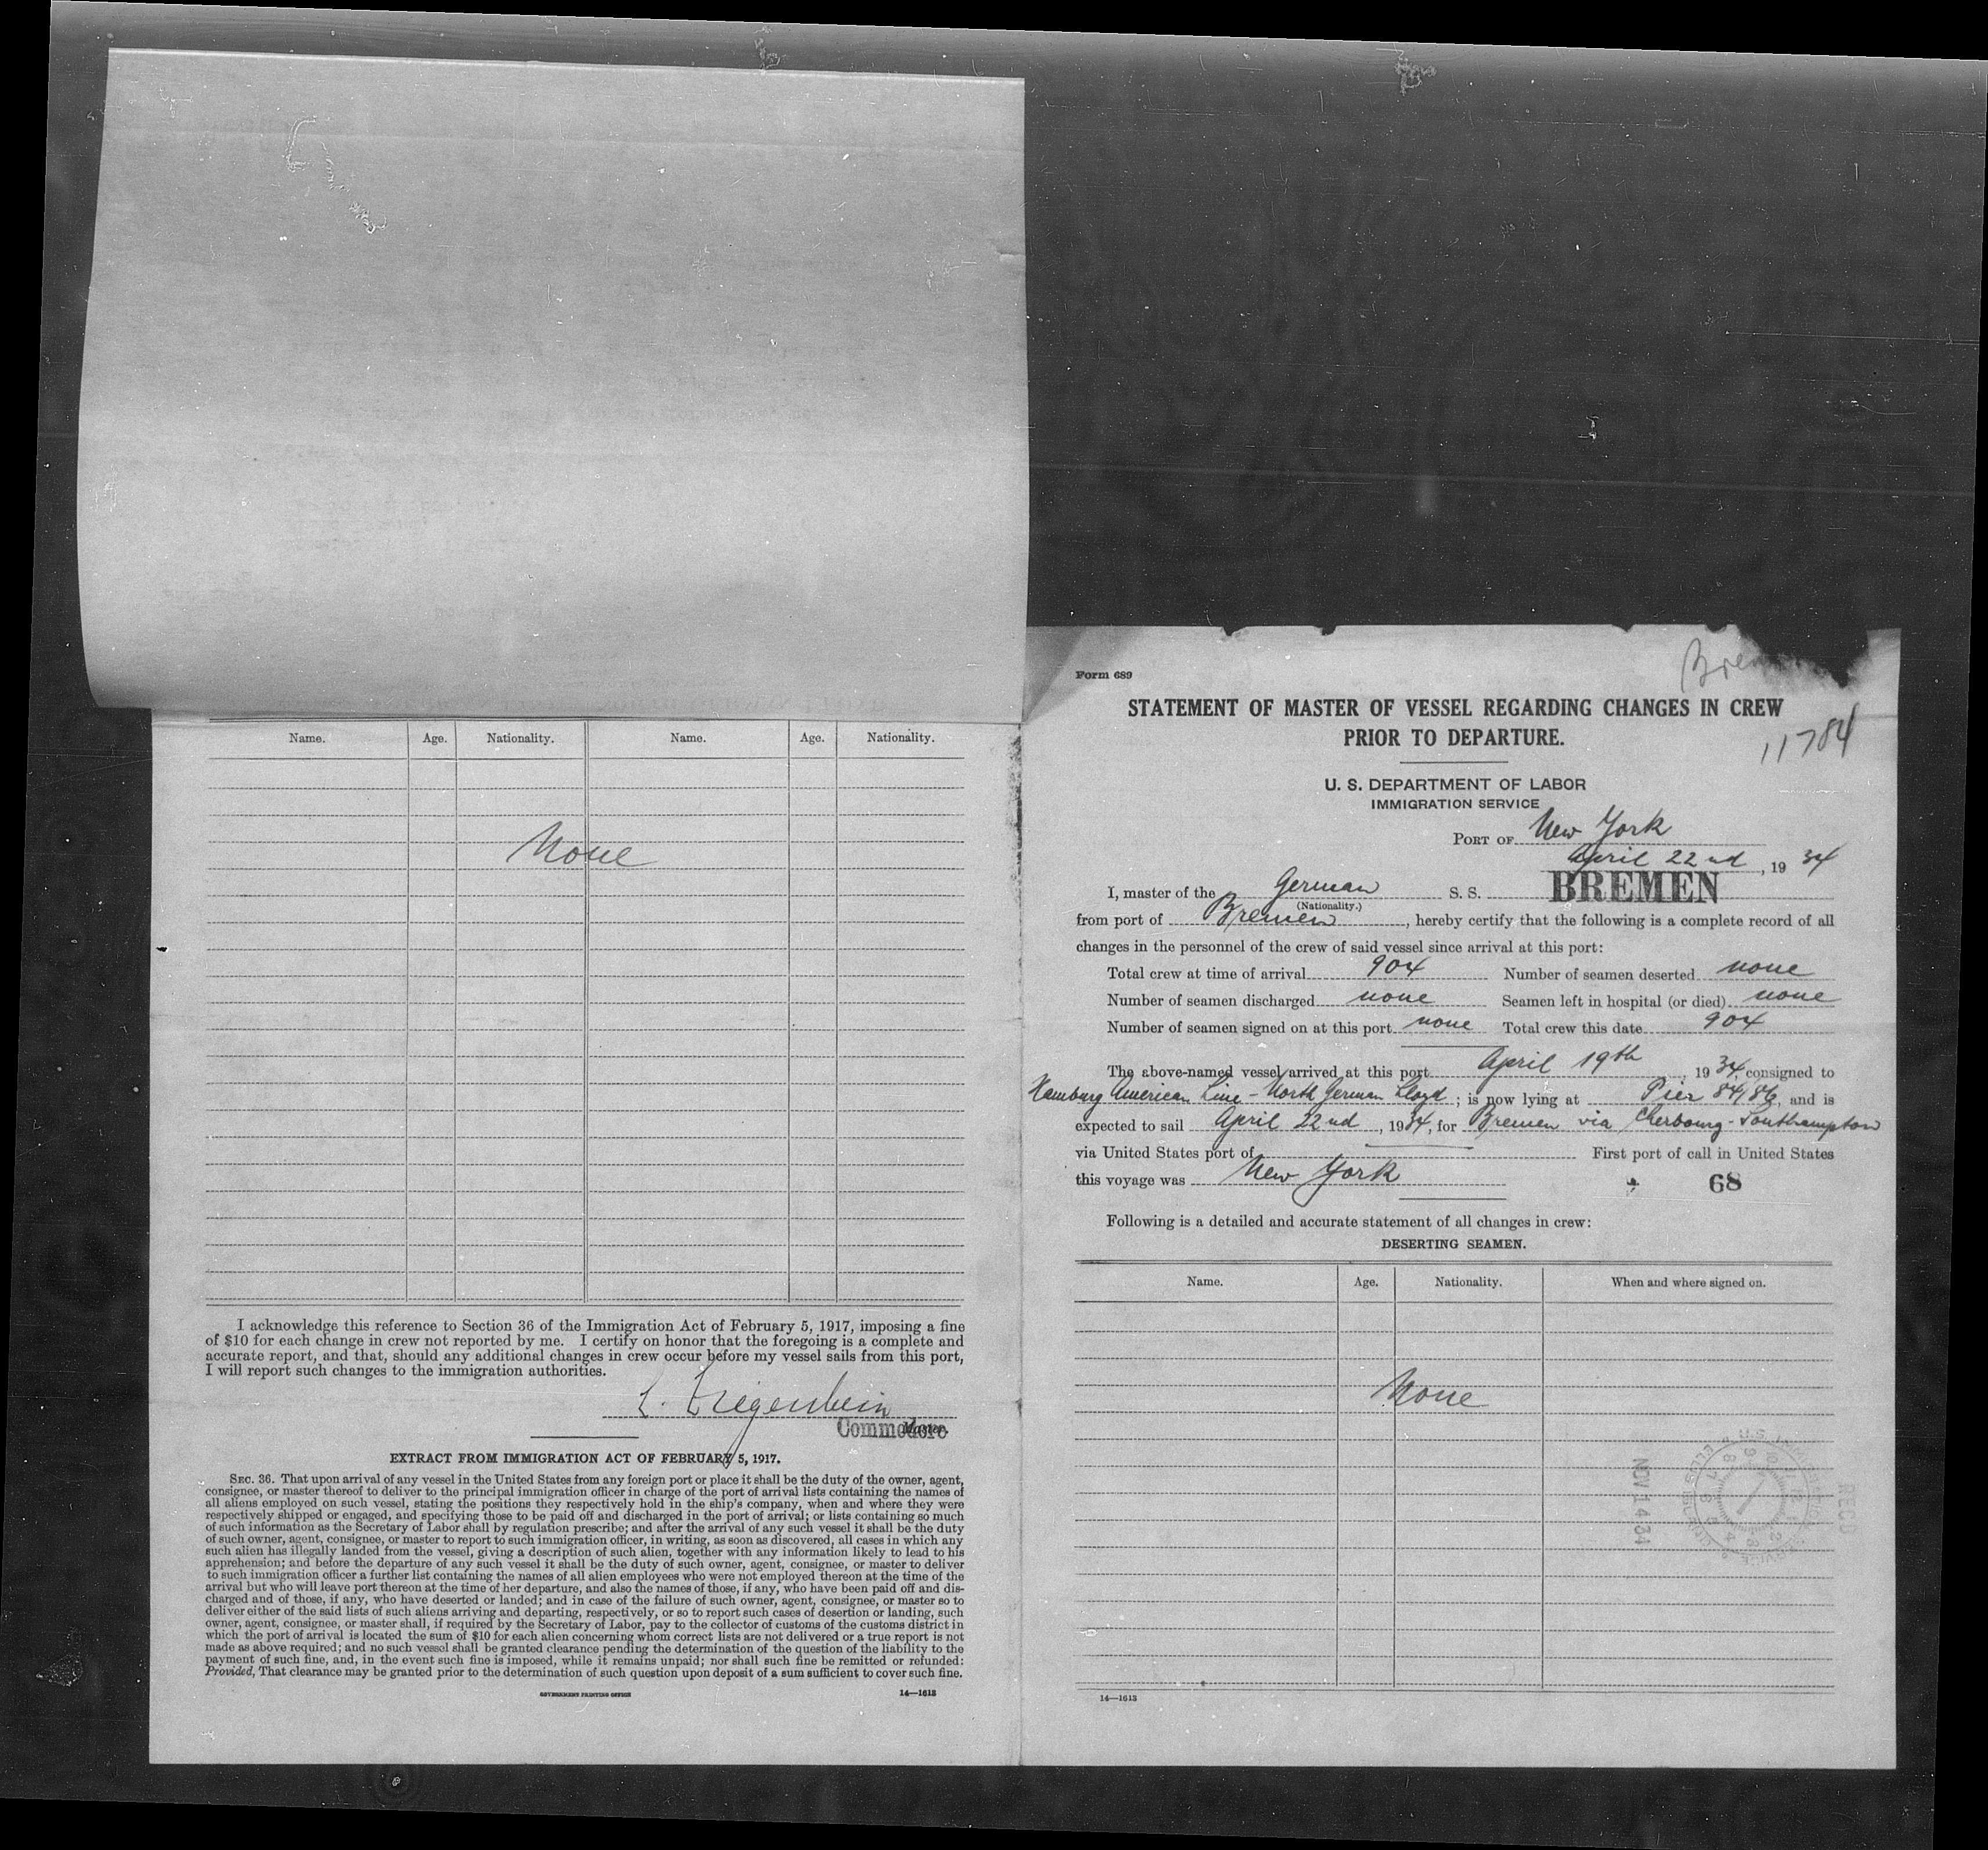 Name. Age. Nationality. Name. Age. Nationality.
None
I acknowledge this reference to Section 36 of the Immigration Act of February 5, 1917, imposing a fine
of $10 for each change in crew not reported by me. I certify on honor that the foregoing is a complete and
accurate report, and that, should any additional changes in crew occur before my vessel sails from this port,
I will report such changes to the immigration authorities.
L. Ziegenbein
Commodore
Master.
EXTRACT FROM IMMIGRATION ACT OF FEBRUARY 5, 1917.
SEC. 36. That upon arrival of any vessel in the United States from any foreign port or place it shall be the duty of the owner, agent,
consignee, or master thereof to deliver to the principal immigration officer in charge of the port of arrival lists containing the names of
all aliens employed on such vessel, stating the positions they respectively hold in the ship's company, when and where they were
respectively shipped or engaged, and specifying those to be paid off and discharged in the port of arrival; or lists containing so much
of such information as the Secretary of Labor shall by regulation prescribe; and after the arrival of any such vessel it shall be the duty
of such owner, agent, consignee, or master to report to such immigration officer, in writing, as soon as discovered, all cases in which any
such alien has illegally landed from the vessel, giving a description of such alien, together with any information likely to lead to his
apprehension; and before the departure of any such vessel it shall be the duty of such owner, agent, consignee, or master to deliver
to such immigration officer a further list containing the names of all alien employees who were not employed thereon at the time of the
arrival but who will leave port thereon at the time of her departure, and also the names of those, if any, who have been paid off and dis-
charged and of those, if any, who have deserted or landed; and in case of the failure of such owner, agent, consignee, or master so to
deliver either of the said lists of such aliens arriving and departing, respectively, or so to report such cases of desertion or landing, such
owner, agent, consignee, or master shall, if required by the Secretary of Labor, pay to the collector of customs of the customs district in
which the port of arrival is located the sum of $10 for each alien concerning whom correct lists are not delivered or a true report is not
made as above required; and no such vessel shall be granted clearance pending the determination of the question of the liability to the
payment of such fine, and, in the event such fine is imposed, while it remains unpaid; nor shall such fine be remitted or refunded:
Provided, That clearance may be granted prior to the determination of such question upon deposit of a sum sufficient to cover such fine.
GOVERNMENT PRINTING OFFICE 14—1613
Form 689
STATEMENT OF MASTER OF VESSEL REGARDING CHANGES IN CREW
PRIOR TO DEPARTURE.
11784
U. S. DEPARTMENT OF LABOR
IMMIGRATION SERVICE
PORT OF New York
April 22nd, 1934
I, master of the German S. S. BREMEN
(Nationality.)
from port of Bremen, hereby certify that the following is a complete record of all
changes in the personnel of the crew of said vessel since arrival at this port:
Total crew at time of arrival 904 Number of seamen deserted none
Number of seamen discharged none Seamen left in hospital (or died) none
Number of seamen signed on at this port none Total crew this date 904
The above-named vessel arrived at this port April 19th, 1934, consigned to
Hamburg American Line - North German Lloyd; is now lying at Pier 84/86, and is
expected to sail April 22nd, 1934, for Bremen via Cherbourg - Southampton
via United States port of First port of call in United States
this voyage was New York 68
Following is a detailed and accurate statement of all changes in crew:
DESERTING SEAMEN.
Name. Age. Nationality. When and where signed on.
None
NOV 14 34
REC'D
14—1613